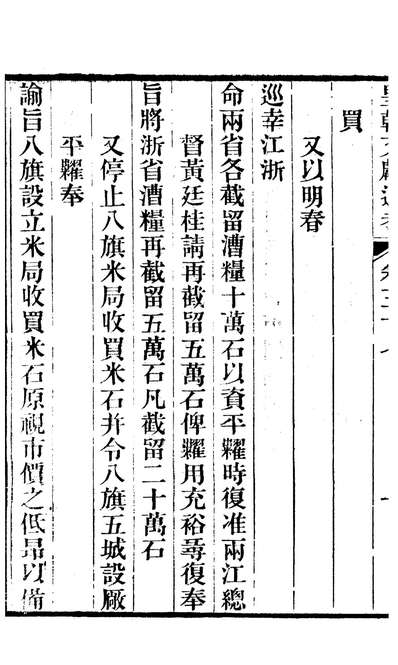 皇朝文獻通考
買
又以明春
巡幸江浙
命兩省各截留漕糧十萬石以資平糶時復准兩江總
督黃廷桂請再截留五萬石俾糶用充裕尋復奉
旨將浙省漕糧再截留五萬石凡截留二十萬石
又停止八旗米局收買米石并令八旗五城設廠
平糶奉
諭旨八旗設立米局收買米石原視市價之低昂以備